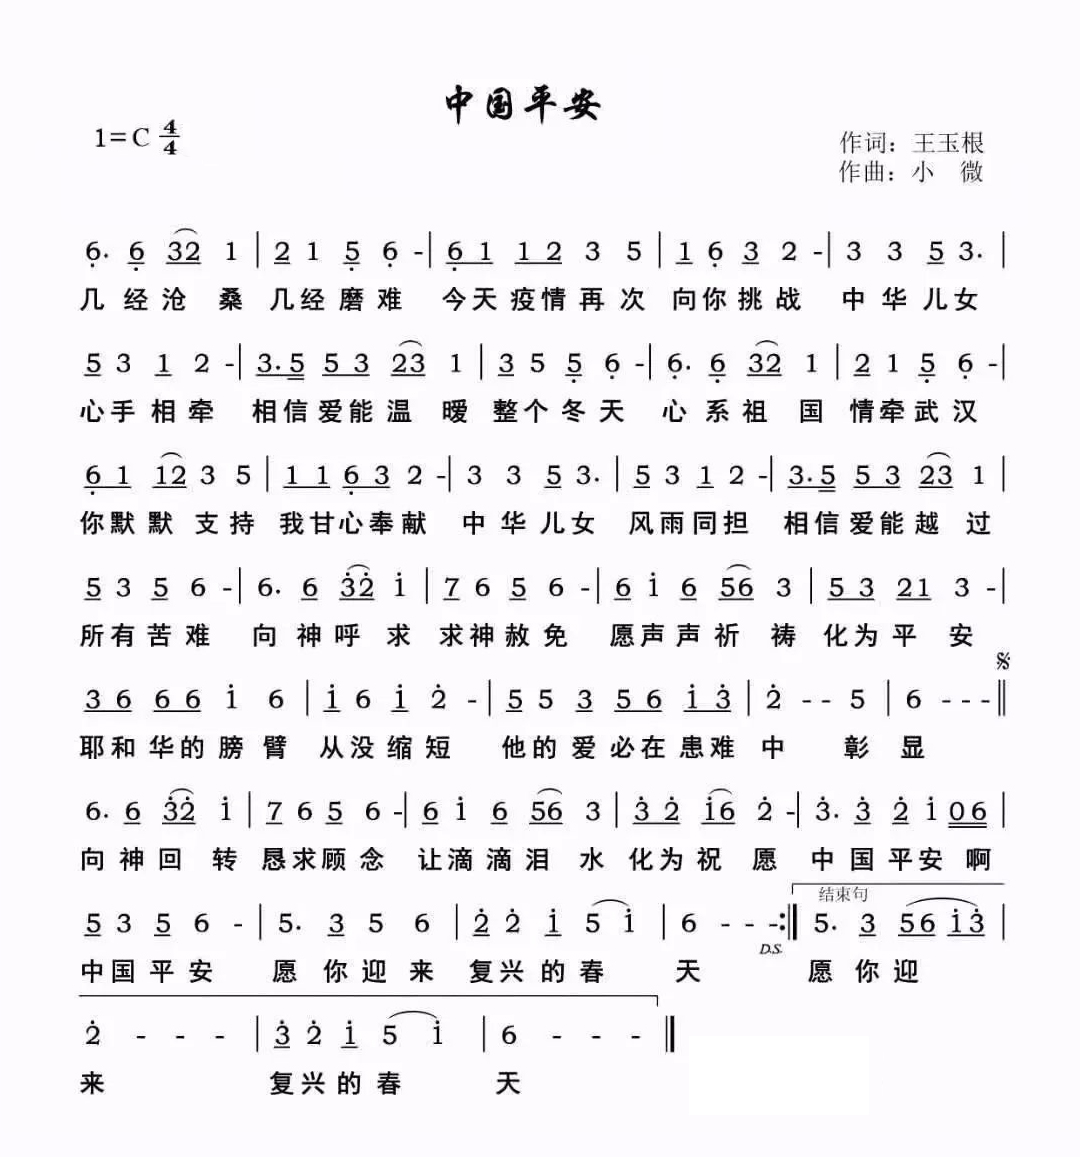 中国平安
1=C 4/4
作词：王玉根
作曲：小 微
6. 6 32 1 | 2 1 5 6 - | 6 1 1 2 3 5 | 1 6 3 2 - | 3 3 5 3. |
几 经 沧 桑 几经磨难 今天疫情再次 向你挑战 中华儿女
5 3 1 2 - | 3. 5 5 3 23 1 | 3 5 5 6 - | 6. 6 32 1 | 2 1 5 6 - |
心手相牵 相信爱能温 暖 整个冬天 心系祖 国 情牵武汉
6 1 12 3 5 | 1 1 6 3 2 - | 3 3 5 3. | 5 3 1 2 - | 3. 5 5 3 23 1 |
你默默 支持 我甘心奉献 中华儿女 风雨同担 相信爱能越 过
5 3 5 6 - | 6. 6 3̇2̇ 1̇ | 7 6 5 6 - | 6 1̇ 6 56 3 | 5 3 21 3 - |
所有苦难 向神呼 求 求神赦免 愿声声祈 祷 化为平 安
3 6 6 6 1̇ 6 | 1̇ 6 1̇ 2̇ - | 5 5 3 5 6 1̇ 3̇ | 2̇ - - 5 | 6 - - - ‖ 𝄋
耶和华的膀臂 从没缩短 他的爱必在患难 中 彰 显
6. 6 3̇2̇ 1̇ | 7 6 5 6 - | 6 1̇ 6 56 3 | 3̇ 2̇ 1̇6 2̇ - | 3̇. 3̇ 2̇ 1̇ 06 |
向神回 转 恳求顾念 让滴滴泪 水 化为祝 愿 中国平安 啊
结束句
5 3 5 6 - | 5. 3 5 6 | 2̇ 2̇ 1̇ 5 1̇ | 6 - - - :‖ 5. 3 56 1̇3̇ |
D.S.
中国平安 愿你迎来 复兴的春 天 愿你迎
2̇ - - - | 3̇ 2̇ 1̇ 5 1̇ | 6 - - - ‖
来 复兴的春 天